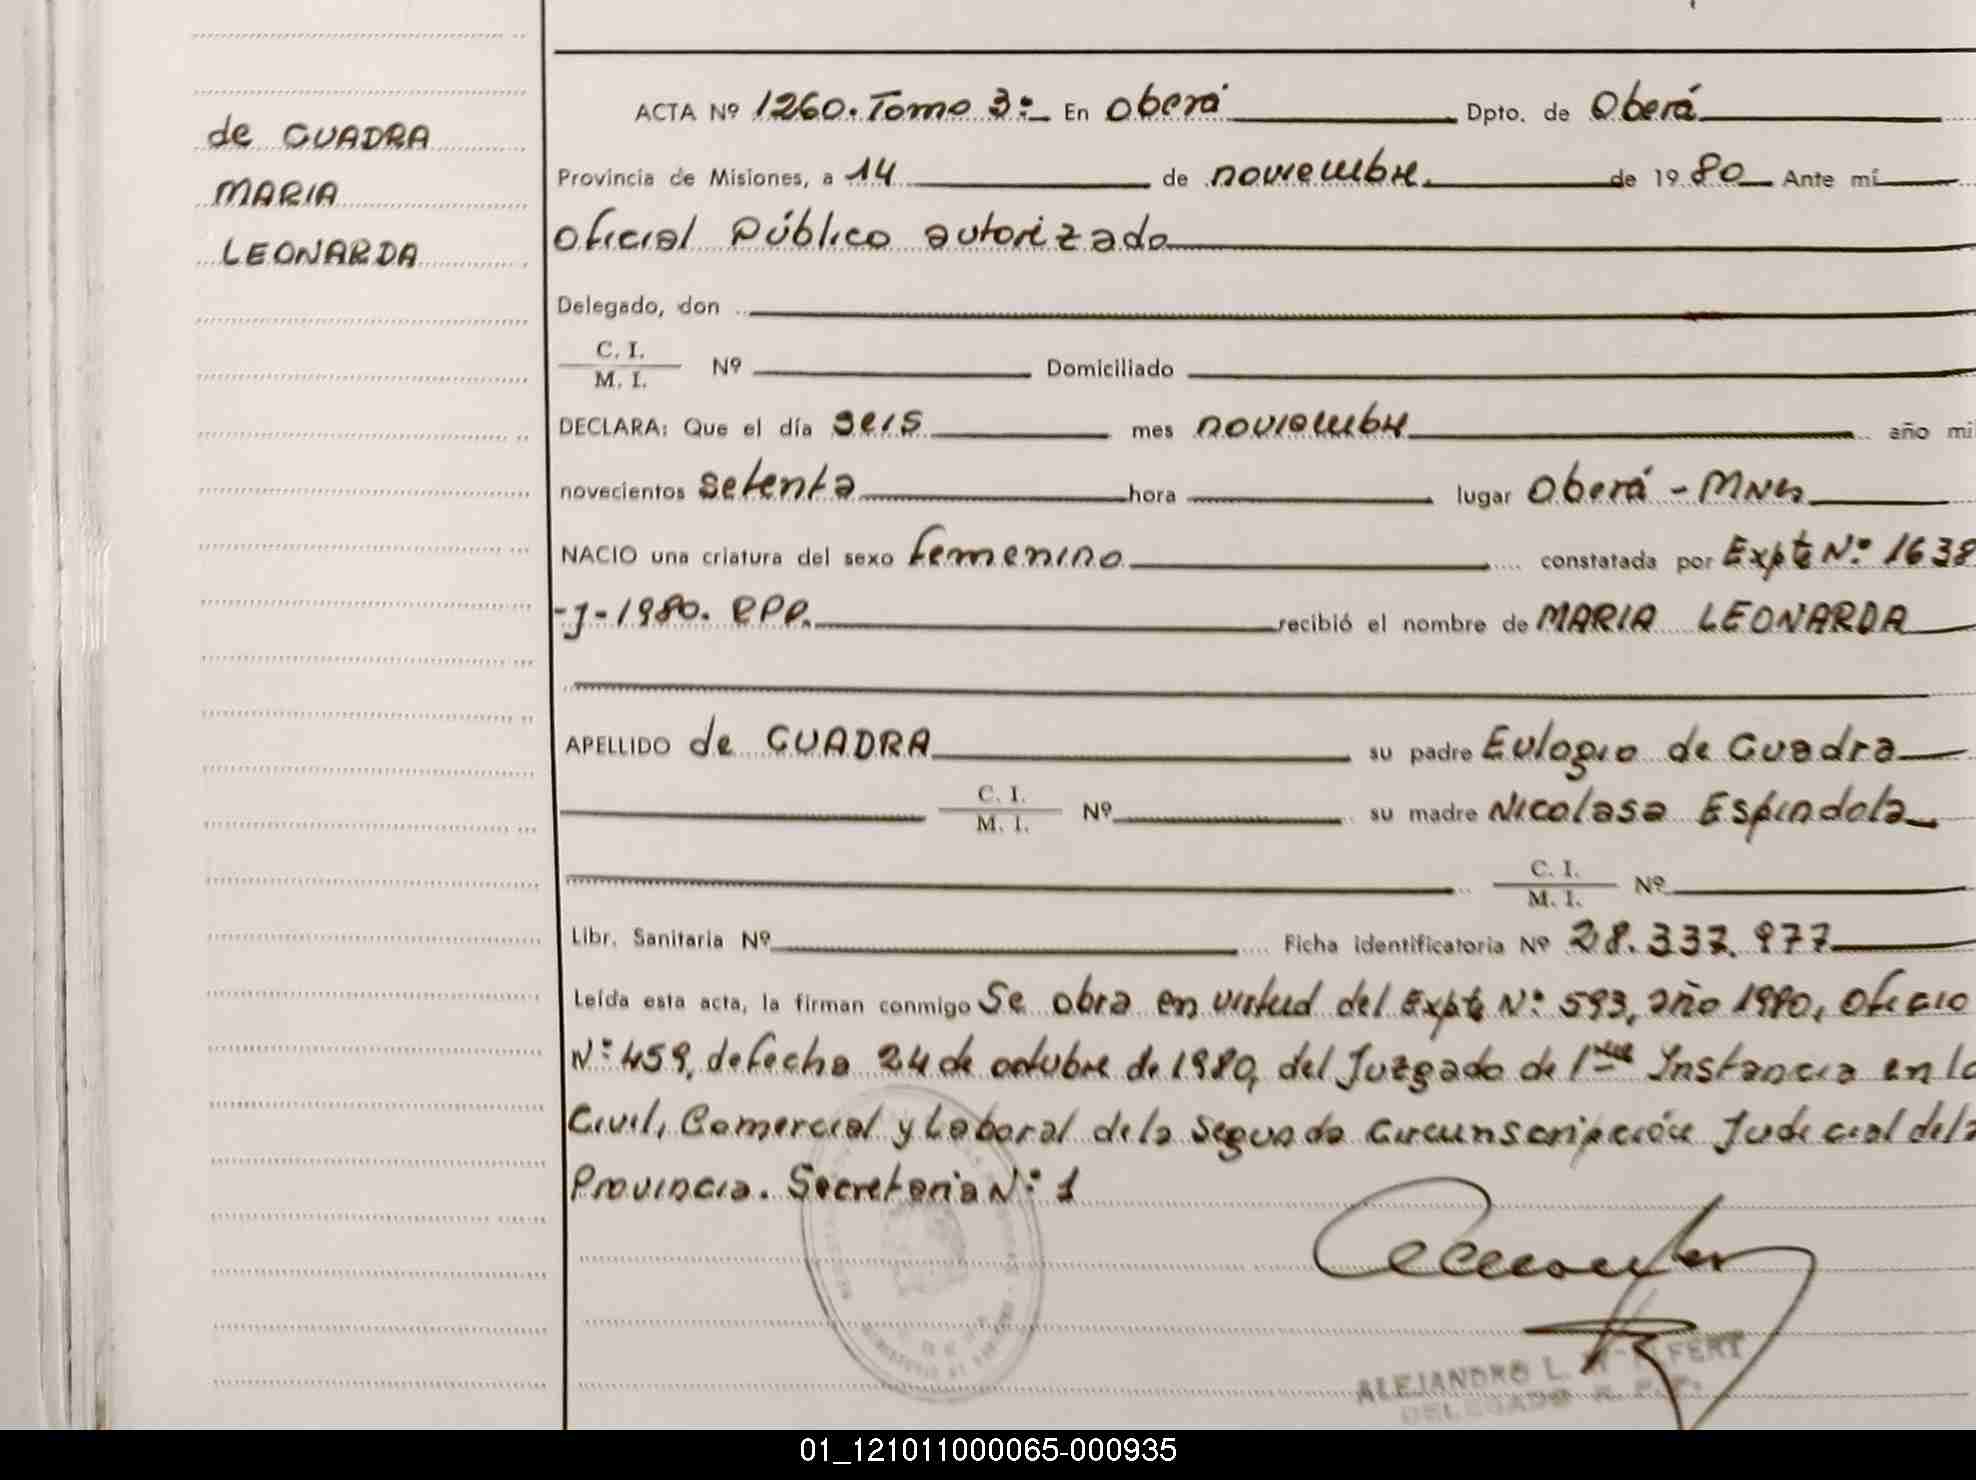 de CUADRA
MARIA
LEONARDA
ACTA Nº 1260. Tomo 3º En Oberá Dpto. de Oberá
Provincia de Misiones, a 14 de noviembre de 1980 Ante mí
Oficial Público autorizado
Delegado, don
C. I.
M. I. Nº Domiciliado
DECLARA: Que el día seis mes noviembre año mi
novecientos setenta hora lugar Oberá - Mnes
NACIO una criatura del sexo femenino constatada por Expte Nº 1638
-J-1980. RPP. recibió el nombre de MARIA LEONARDA
APELLIDO de CUADRA su padre Eulogio de Cuadra
C. I.
M. I. Nº su madre Nicolasa Espindola
C. I.
M. I. Nº
Libr. Sanitaria Nº Ficha identificatoria Nº 28.337.977
Leída esta acta, la firman conmigo Se obra en virtud del Expte Nº 593, año 1980, Oficio
Nº 459, de fecha 24 de octubre de 1980, del Juzgado de 1ra Instancia en lo
Civil, Comercial y Laboral de la Segunda Circunscripción Judicial de la
Provincia. Secretaria Nº 1
ALEJANDRO L.
DELEGADO R. P. P.
01_121011000065-000935